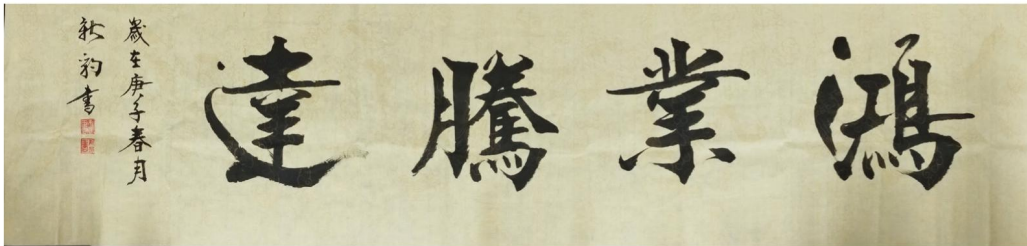 鴻業騰達
歲在庚子春月
秋韵書